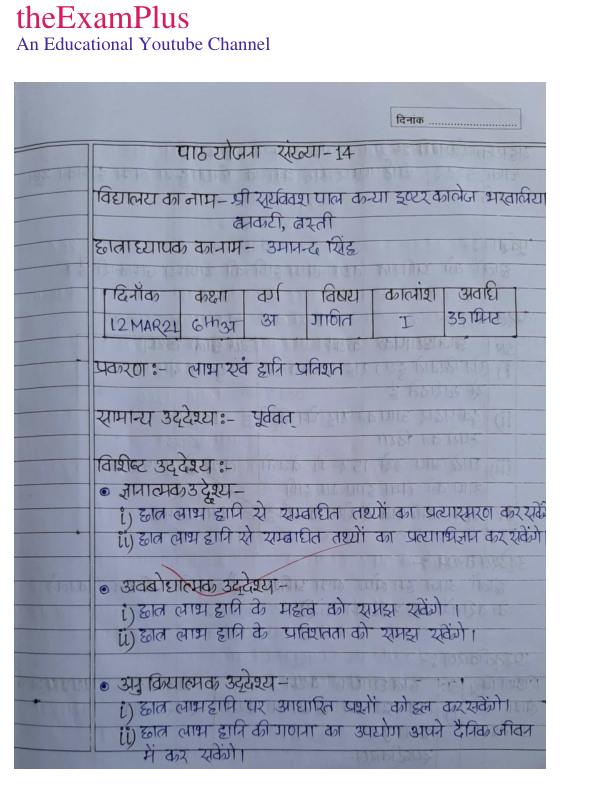 theExamPlus
An Educational Youtube Channel
दिनाक ...........................
पाठ योजना संख्या-14
विद्यालय का नाम- श्री सूर्यवंश पाल कन्या इण्टर कालेज भरवलिया
बनकटी, बस्ती
छात्राध्यापक का नाम- उमानन्द सिंह
दिनाँक कक्षा वर्ग विषय कालांश अवधि
12 MAR21 6th अ अ गणित I 35 मिनट
प्रकरण :- लाभ एवं हानि प्रतिशत
सामान्य उद्देश्य :- पूर्ववत्
विशिष्ट उद्देश्य :-
• ज्ञानात्मक उद्देश्य-
i) छात्र लाभ हानि से सम्बन्धित तथ्यों का प्रत्यास्मरण कर सकेंगे
ii) छात्र लाभ हानि से सम्बन्धित तथ्यों का प्रत्याभिज्ञान कर सकेंगे।
• अवबोधात्मक उद्देश्य-
i) छात्र लाभ हानि के महत्व को समझ सकेंगे ।
ii) छात्र लाभ हानि के प्रतिशतता को समझ सकेंगे।
• अनुक्रियात्मक उद्देश्य-
i) छात्र लाभ हानि पर आधारित प्रश्नों को हल कर सकेंगे।
ii) छात्र लाभ हानि की गणना का उपयोग अपने दैनिक जीवन
में कर सकेंगे।